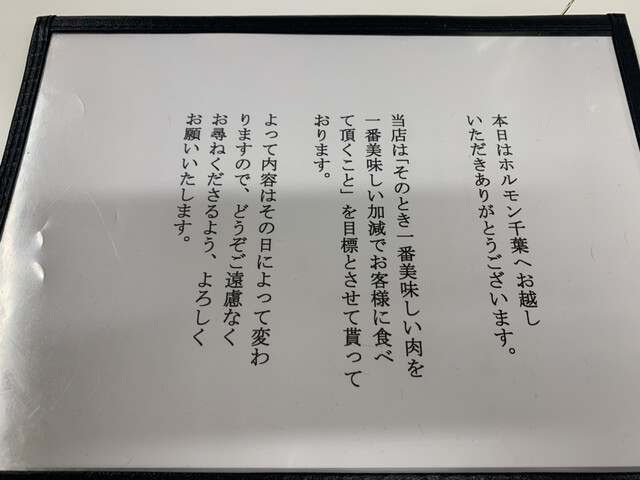 本日はホルモン千葉へお越し
いただきありがとうございます。
当店は「そのとき一番美味しい肉を
一番美味しい加減でお客様に食べ
て頂くこと」を目標とさせて貰って
おります。
よって内容はその日によって変わ
りますので、どうぞご遠慮なく
お尋ねくださるよう、よろしく
お願いいたします。